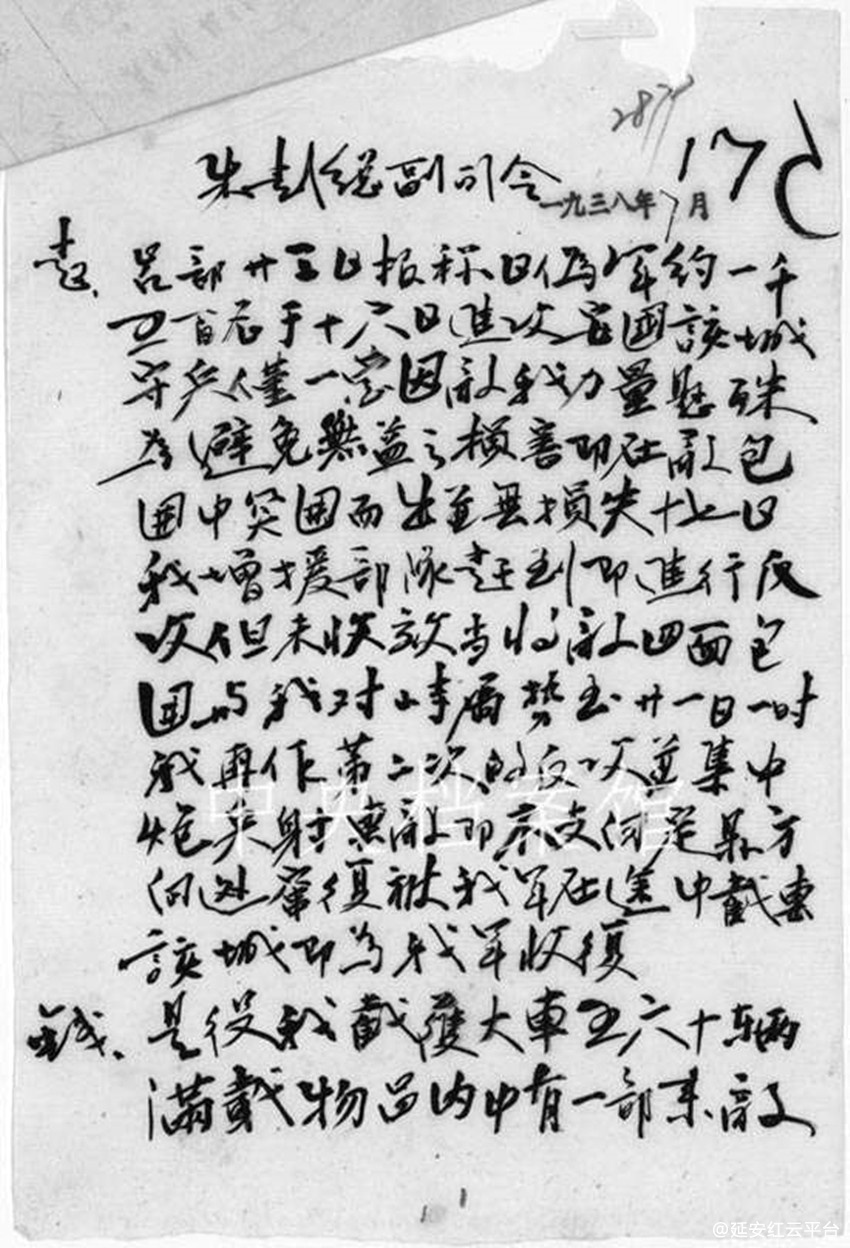 28
175
朱彭總副司令
一九三八年7月
赵、呂部廿三日报称日伪军約一千
五百名于十六日進攻安國該城
守兵僅一营因敵我力量懸殊
为避免無益之損害即在敵包
囲中突囲而出並無損失十七日
我增援部隊赶到即進行反
攻但未收效当將敵四面包
囲与我对峙局势至廿一日一时
我再作第二次的反攻並集中
炮火射击敵即不支向定县方
向逃窜復被我军在途中截击
該城即為我军收復
钱、是役我截獲大車五六十輛
滿載物品內中有一部系敵
1
中央档案馆
@延安红云平台